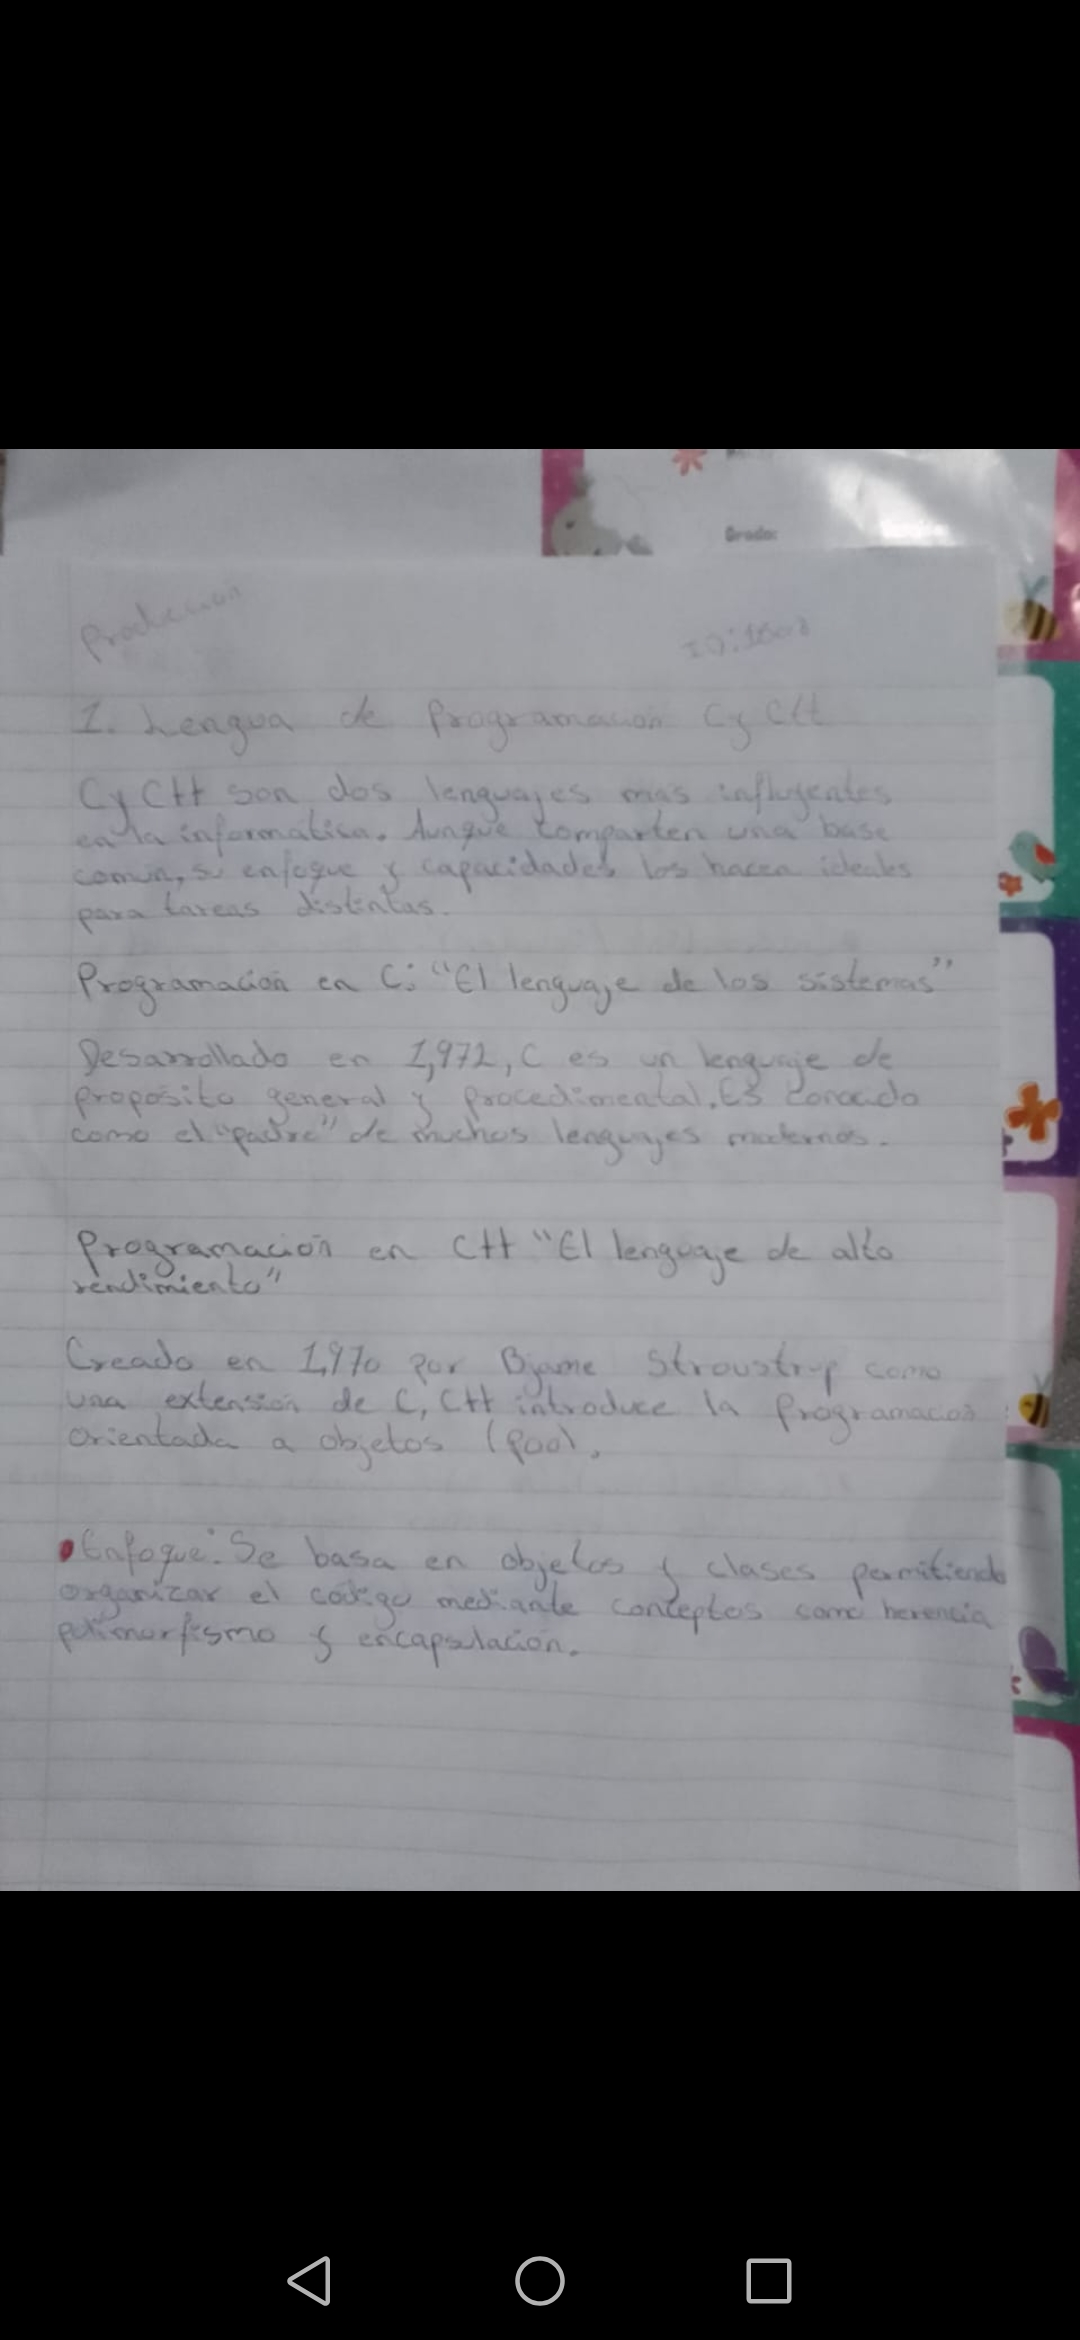 Grado:
Produccion
1. Lengua de Programacion C y C++
C y C++ son dos lenguajes mas influyentes
en la informática. Aunque comparten una base
comun, su enfoque y capacidades los hacen ideales
para tareas distintas.
Programación en C: "El lenguaje de los sistemas"
Desarrollado en 1,972, C es un lenguaje de
proposito general y procedimental. Es conocido
como el "padre" de muchos lenguajes modernos.
Programación en C++ "El lenguaje de alto
rendimiento"
Creado en 1,970 por Bjame Stroustrup como
una extensión de C, C++ introduce la Programacion
Orientada a objetos (poo).
• Enfoque: Se basa en objetos y clases permitiendo
organizar el código mediante conceptos como herencia
polimorfismo y encapsulación.